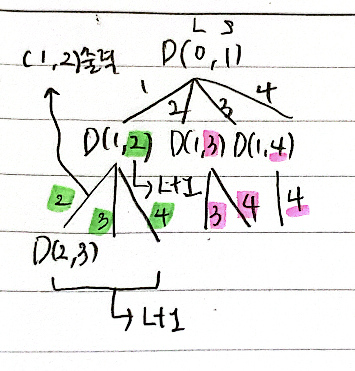 L S
(1,2)출력 D(0,1)
1 2 3 4
D(1,2) D(1,3) D(1,4)
↳ L+1
2 3 4 3 4 4
D(2,3)
↳ L+1